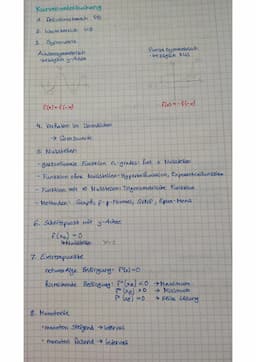 Kurvenuntersuchung
1. Definitionsbereich DB
2. Wertebereich WB
3. Symmetrie
Achsensymmetrisch
bezüglich y-Achse
Punktsymmetrisch
bezüglich
f(x)=f(-x)
f(x)=-f(-x)
4. Verhalten im Unendlichen
→ Grenzwerte
5. Nullstellen
- ganzrationale Funktion n-grades: hat n Nullstellen
- Funktion ohne Nullstellen: Hyperbelfunktion, Exponentialfunktion
- Funktion mit ∞ Nullstellen: Trigonometrische Funktion
- Methoden: Graph, p-q-Formel, Satz, Menü
6. Schnittpunkt mit y-Achse
=0
→ Nullstellen
7. Extrempunkte
notwendige Bedingung: f'(x)=0
hinreichende Bedingung: <0 → Maximum
>0 → Minimum
=0 → keine Lösung
8. Monotonie
• monoton steigend → Intervall
• monoton fallend → Intervall